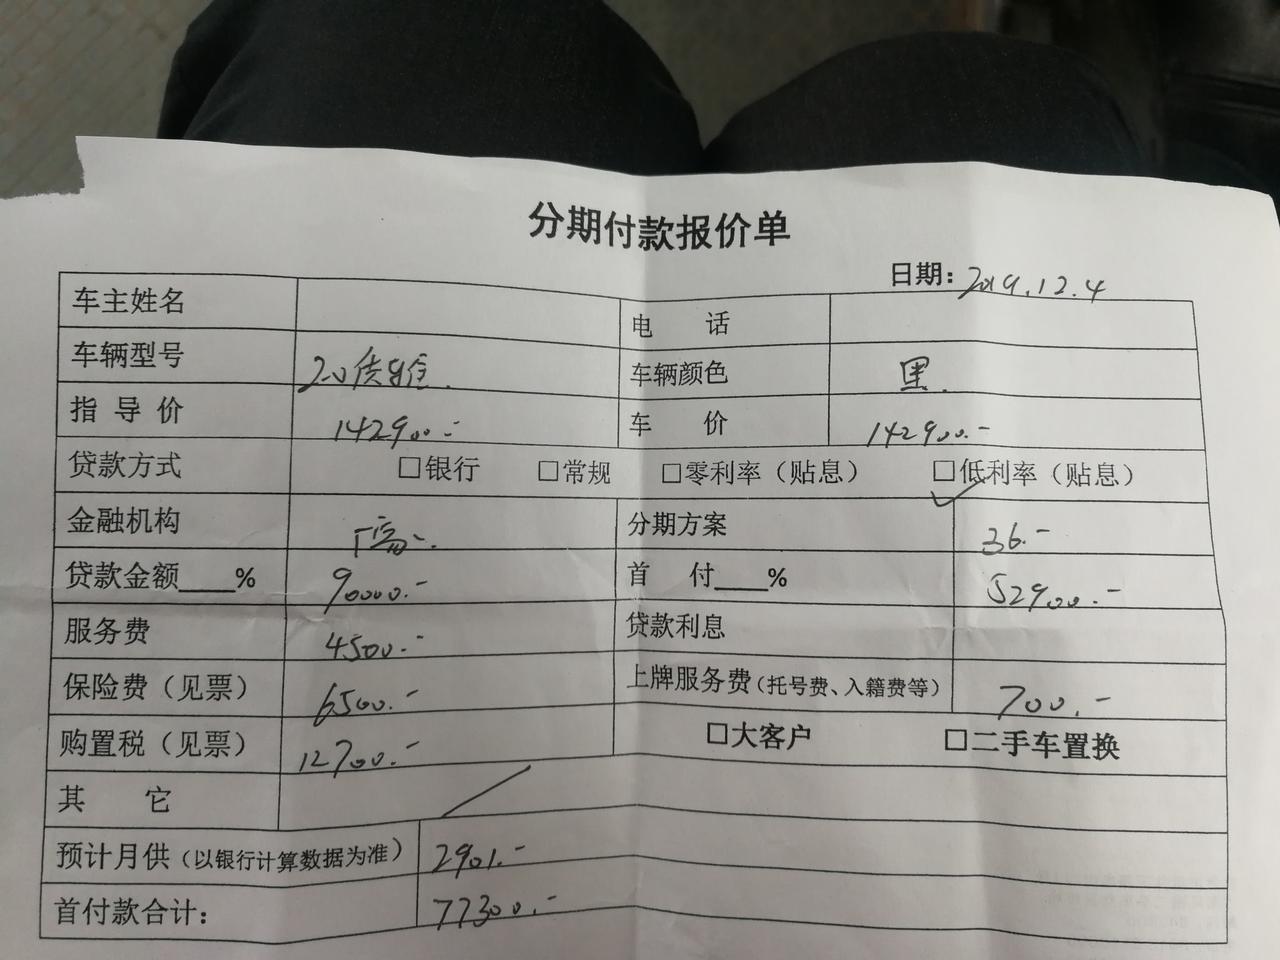 分期付款报价单
日期：2019.12.4
车主姓名
电 话
车辆型号 2.0
车辆颜色 黑.
指导价 142900.-
车 价 142900.-
贷款方式 □银行 □常规 □零利率（贴息） □低利率（贴息）
金融机构
分期方案 36.-
贷款金额____% 90000.-
首 付____% 52900.-
服务费 4500.-
贷款利息
保险费（见票） 6500.-
上牌服务费（托号费、入籍费等） 700.-
购置税（见票） 12700.-
□大客户 □二手车置换
其 它
预计月供（以银行计算数据为准） 2901.-
首付款合计： 77300.-